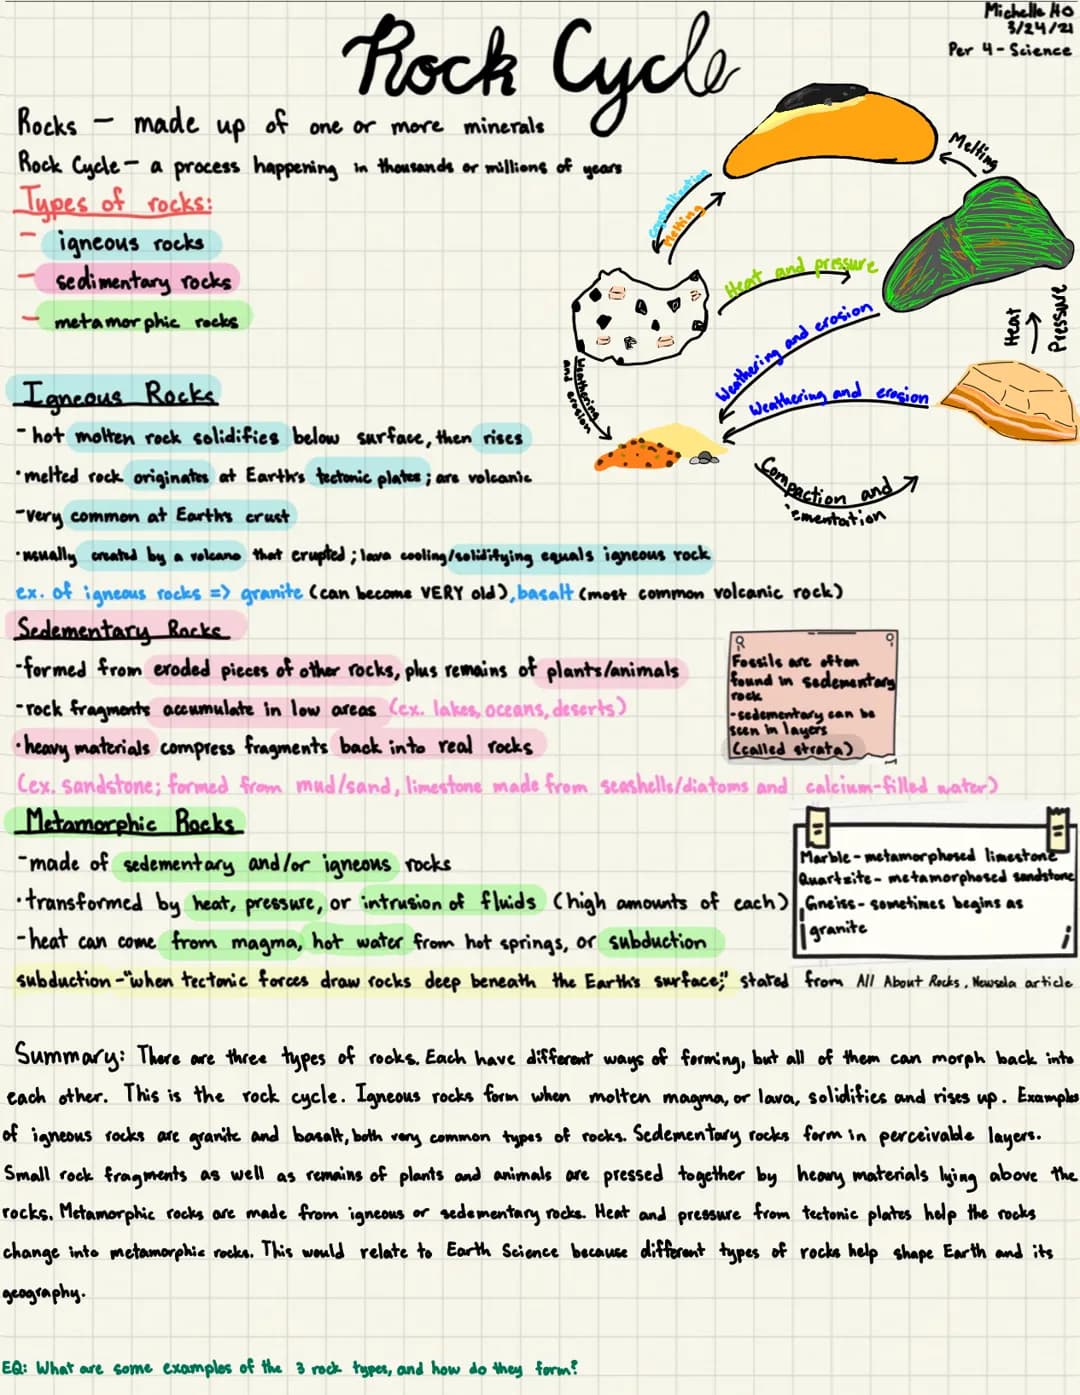 Michelle Ho
3/24/21
Per 4 - Science
Rock Cycle
Rocks - made up of one or more minerals
Rock Cycle - a process happening in thousands or millions of years
Types of rocks:
- igneous rocks
- sedimentary rocks
- metamorphic rocks
Melting
Crystallization
Melting
Heat and pressure
Heat
Pressure
Weathering and erosion
Weathering and erosion
Weathering
and erosion
Compaction and
ementation
Igneous Rocks
- hot molten rock solidifies below surface, then rises
• melted rock originates at Earth's tectonic plates; are volcanic
- very common at Earth's crust
• usually created by a volcano that erupted; lava cooling/solidifying equals igneous rock
ex. of igneous rocks => granite (can become VERY old), basalt (most common volcanic rock)
Sedementary Rocks
- formed from eroded pieces of other rocks, plus remains of plants/animals
- rock fragments accumulate in low areas (ex. lakes, oceans, deserts)
• heavy materials compress fragments back into real rocks
(ex. sandstone; formed from mud/sand, limestone made from seashells/diatoms and calcium-filled water)
Fossils are often
found in sedementary
rock
- sedementary can be
seen in layers
(called strata)
Metamorphic Rocks
- made of sedementary and/or igneous rocks
• transformed by heat, pressure, or intrusion of fluids (high amounts of each)
- heat can come from magma, hot water from hot springs, or subduction
subduction - "when tectonic forces draw rocks deep beneath the Earth's surface;" stated from All About Rocks, Newsela article
Marble - metamorphosed limestone
Quartzite - metamorphosed sandstone
Gneiss - sometimes begins as
granite
Summary: There are three types of rocks. Each have different ways of forming, but all of them can morph back into
each other. This is the rock cycle. Igneous rocks form when molten magma, or lava, solidifies and rises up. Examples
of igneous rocks are granite and basalt, both very common types of rocks. Sedementary rocks form in perceivable layers.
Small rock fragments as well as remains of plants and animals are pressed together by heavy materials lying above the
rocks. Metamorphic rocks are made from igneous or sedementary rocks. Heat and pressure from tectonic plates help the rocks
change into metamorphic rocks. This would relate to Earth Science because different types of rocks help shape Earth and its
geography.
EQ: What are some examples of the 3 rock types, and how do they form?